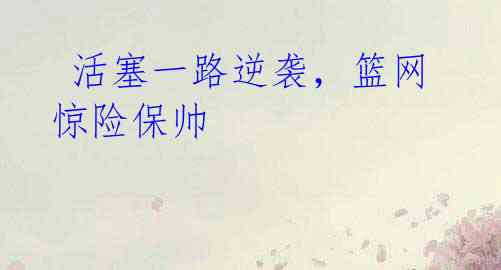 活塞一路逆袭，篮网
惊险保帅